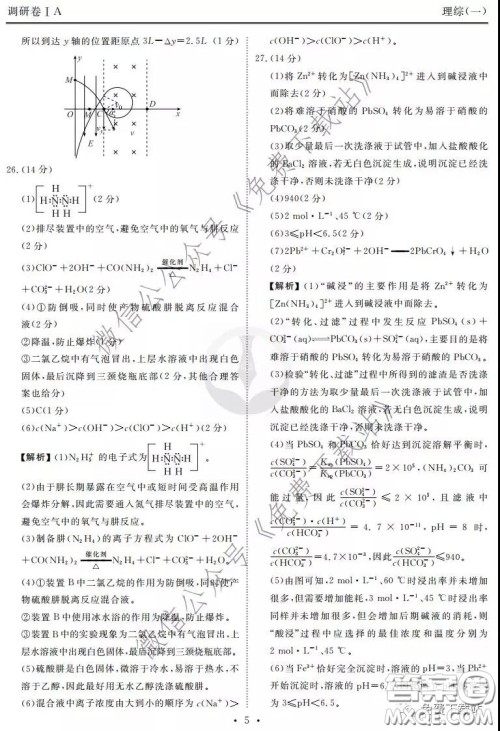 调研卷ⅠA
理综(一)
所以到达 y 轴的位置距原点 3L－Δy=2.5L (1 分)
y
M
O M C D x
E v
26.(14 分)
(1)[H:N:N:H]⁺(2 分)
H H
H
(2)排尽装置中的空气,避免空气中的氧气与肼反应
(2 分)
(3)ClO⁻+2OH⁻+CO(NH₂)₂ 催化剂 N₂H₄+Cl⁻
+CO₃²⁻+H₂O(2 分)
(4)①防倒吸,同时使产物硫酸肼脱离反应混合
液(2 分)
②降温,防止爆炸(1 分)
③二氯乙烷中有气泡冒出,上层水溶液中出现白色
固体,最后沉降到三颈烧瓶底部(2 分,其他合理答
案也给分)
(5)C(1 分)
(6)c(Na⁺)>c(Cl⁻)>c(CO₃²⁻)>
c(OH⁻)>c(ClO⁻)>c(H⁺)。
【解析】(1)N₂H₅⁺的电子式为[H:N:N:H]⁺。
(2)由于肼长期暴露在空气中或短时间受高温作用
会爆炸分解,因此需要通入氮气排尽装置中的空气,
避免空气中的氧气与肼反应。
(3)制备肼(N₂H₄)的离子方程式为 ClO⁻+2OH⁻
+CO(NH₂)₂ 催化剂 N₂H₄+Cl⁻+CO₃²⁻+H₂O。
(4)①装置 B 中二氯乙烷的作用为防倒吸,同时使产
物硫酸肼脱离反应混合液。
②装置 B 中使用冰水浴的作用为降温,防止爆炸。
③装置 B 中的实验现象为二氯乙烷中有气泡冒出,上
层水溶液中出现白色固体,最后沉降到三颈烧瓶底部。
(5)硫酸肼是白色固体,微溶于冷水,易溶于热水,不
溶于乙醇,因此最好用无水乙醇洗涤硫酸肼。
(6)混合液中离子浓度由大到小的顺序为
27.(14 分)
(1)将 Zn²⁺ 转化为 [Zn(NH₃)₄]²⁺ 进入到碱浸液中
而除去(2 分)
(2)将难溶于硝酸的 PbSO₄ 转化为易溶于硝酸的
PbCO₃(2 分)
(3)取少量最后一次洗涤液于试管中,加入盐酸酸化
的 BaCl₂ 溶液,若无白色沉淀生成,说明沉淀已经洗
涤干净,否则未洗涤干净(2 分)
(4)940(2 分)
(5)2 mol·L⁻¹、45 ℃(2 分)
(6)3≤pH<6.5(2 分)
(7)2Pb²⁺+Cr₂O₇²⁻+2OH⁻═2PbCrO₄↓+H₂O
(2 分)
【解析】(1)“碱浸”的主要作用是将 Zn²⁺ 转化为
[Zn(NH₃)₄]²⁺ 进入到碱浸液中而除去。
(2)“转化、过滤”过程中发生反应 PbSO₄(s)+
CO₃²⁻(aq)⇌PbCO₃(s)+SO₄²⁻(aq),主要目的是将
难溶于硝酸的 PbSO₄ 转化为易溶于硝酸的 PbCO₃。
(3)检验“转化、过滤”过程中所得到的滤渣是否洗涤
干净的方法为取少量最后一次洗涤液于试管中,加
入盐酸酸化的 BaCl₂ 溶液,若无白色沉淀生成,说明
沉淀已经洗涤干净,否则未洗涤干净。
(4)当 PbSO₄ 和 PbCO₃ 恰好达到沉淀溶解平衡时,
c(SO₄²⁻)/c(CO₃²⁻)=Ksp(PbSO₄)/Ksp(PbCO₃)=2×10⁵,(NH₄)₂CO₃ 可
能过量,因此 c(SO₄²⁻)/c(CO₃²⁻)≤2×10⁵,且滤液中
c(CO₃²⁻)·c(H⁺)/c(HCO₃⁻)=4.7×10⁻¹¹,pH=8 时,
c(CO₃²⁻)/c(HCO₃⁻)=4.7×10⁻³,因此 c(SO₄²⁻)/c(HCO₃⁻)≤940。
(5)由图可知,2 mol·L⁻¹、60 ℃时浸出率并未增加
很多,同样 3 mol·L⁻¹、45 ℃时浸出率与 2 mol·L⁻¹
同样并未增加很多,但会增加后期碱液的消耗,则
“酸浸”过程中应选择的最佳浓度和温度分别为
2 mol·L⁻¹、45 ℃。
(6)当 Fe³⁺ 恰好完全沉淀时,溶液的 pH=3,当 Pb²⁺
开始沉淀时,溶液的 pH=6.5,
为 3≤pH<6.5。
·5·
微信公众号《免费下载站》
微信公众号《免费下载站》
答案圈